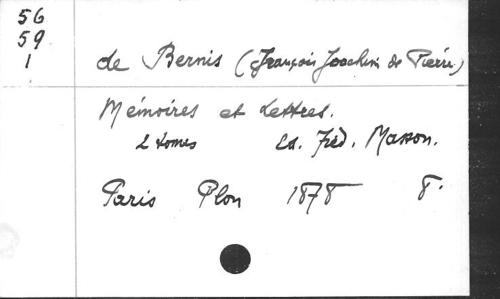 56
59
1
de Bernis (François Joachim de Pierre)
Mémoires et Lettres.
2 tomes Ed. Fréd. Masson.
Paris Plon 1878 8.